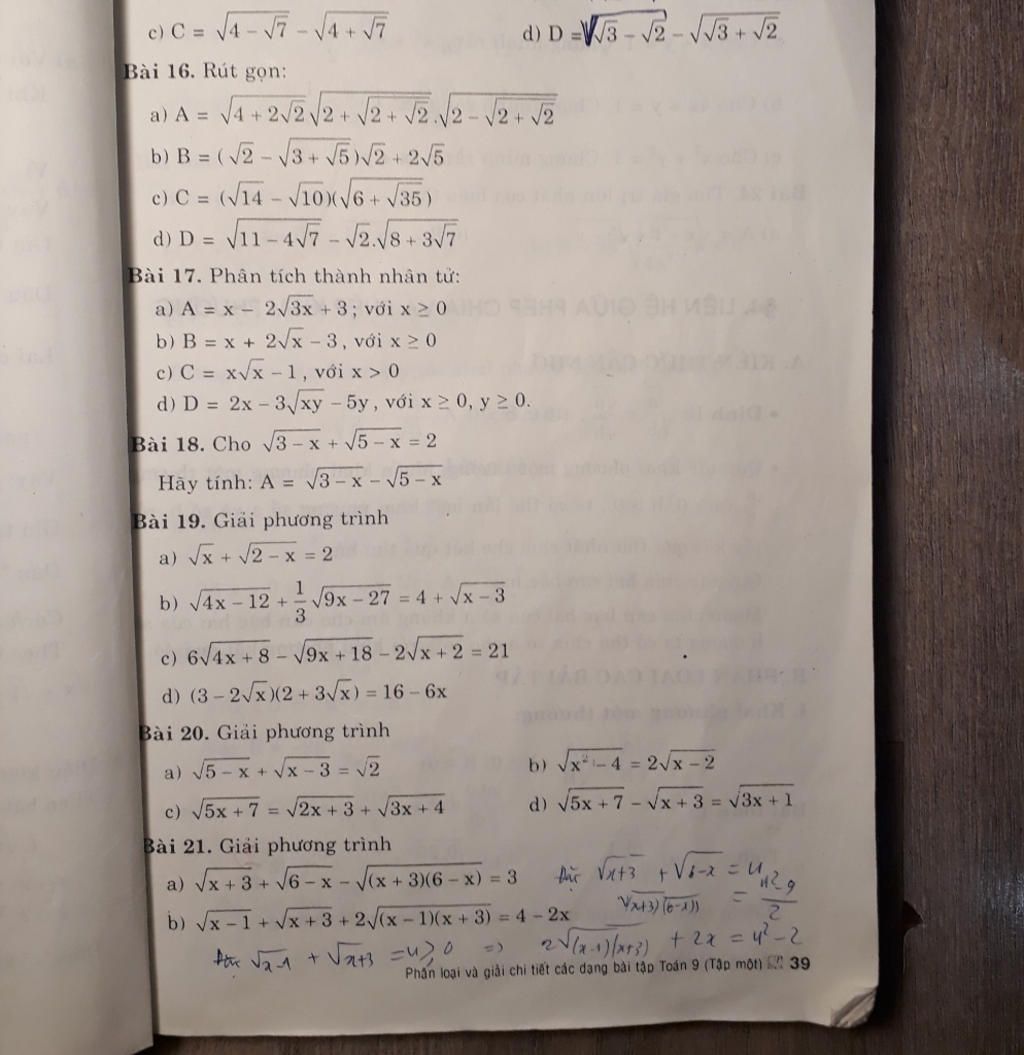 c) C = √(4 − √7) − √(4 + √7) d) D = √(√3 − √2) − √(√3 + √2)
Bài 16. Rút gọn:
a) A = √(4 + 2√2)√(2 + √(2 + √2)).√(2 − √(2 + √2))
b) B = (√2 − √(3 + √5))√2 + 2√5
c) C = (√14 − √10)(√(6 + √35))
d) D = √(11 − 4√7) − √2.√(8 + 3√7)
Bài 17. Phân tích thành nhân tử:
a) A = x − 2√(3x) + 3; với x ≥ 0
b) B = x + 2√x − 3, với x ≥ 0
c) C = x√x − 1, với x > 0
d) D = 2x − 3√(xy) − 5y, với x ≥ 0, y ≥ 0.
Bài 18. Cho √(3 − x) + √(5 − x) = 2
Hãy tính: A = √(3 − x) − √(5 − x)
Bài 19. Giải phương trình
a) √x + √(2 − x) = 2
b) √(4x − 12) + 1/3 √(9x − 27) = 4 + √(x − 3)
c) 6√(4x + 8) − √(9x + 18) − 2√(x + 2) = 21
d) (3 − 2√x)(2 + 3√x) = 16 − 6x
Bài 20. Giải phương trình
a) √(5 − x) + √(x − 3) = √2 b) √(x² − 4) = 2√(x − 2)
c) √(5x + 7) = √(2x + 3) + √(3x + 4) d) √(5x + 7) − √(x + 3) = √(3x + 1)
Bài 21. Giải phương trình
a) √(x + 3) + √(6 − x) − √((x + 3)(6 − x)) = 3 Đặt √(x+3) + √(6−x) = u
√((x+3)(6−x)) = (u² − 9)/2
b) √(x − 1) + √(x + 3) + 2√((x − 1)(x + 3)) = 4 − 2x
Đặt √(x−1) + √(x+3) = u ≥ 0 => 2√((x−1)(x+3)) + 2x = u² − 2
Phân loại và giải chi tiết các dạng bài tập Toán 9 (Tập một) 39